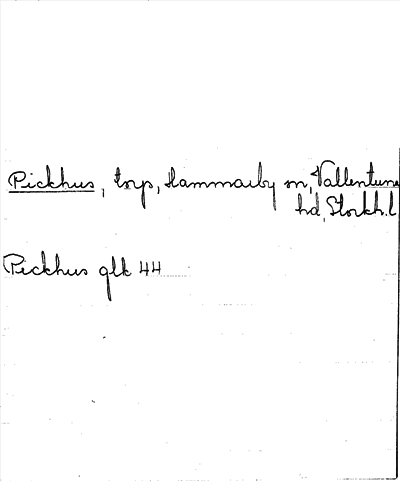 Pickhus, torp, Hammarby sn, Vallentuna
hd, Stockh.l
Pickhus glk 44